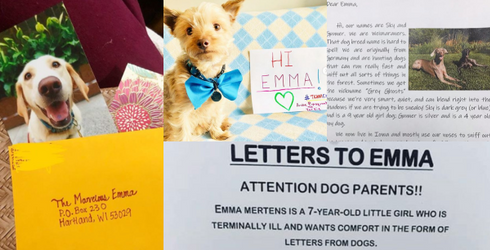 The Marvelous Emma
P.O. Box 230
Hartland, WI 53029
HI
EMMA!
Dear Emma,
Hi, our names are Sky and
We are Weimaraners.
That dog breed name is hard to
spell. We are originally from
Germany and are hunting dogs
that can run really fast and
sniff out all sorts of things in
the forest. Sometimes we get
the nickname "Grey Ghosts"
because we're very smart, and can blend right into the
if we are trying to be sneaky. Sky is dark grey (or blue)
and is a year old girl dog. is silver and is a 4 year old
dog.
We now live in and mostly use our noses to sniff out
LETTERS TO EMMA
ATTENTION DOG PARENTS!!
EMMA MERTENS IS A 7-YEAR-OLD LITTLE GIRL WHO IS
TERMINALLY ILL AND WANTS COMFORT IN THE FORM OF
LETTERS FROM DOGS.